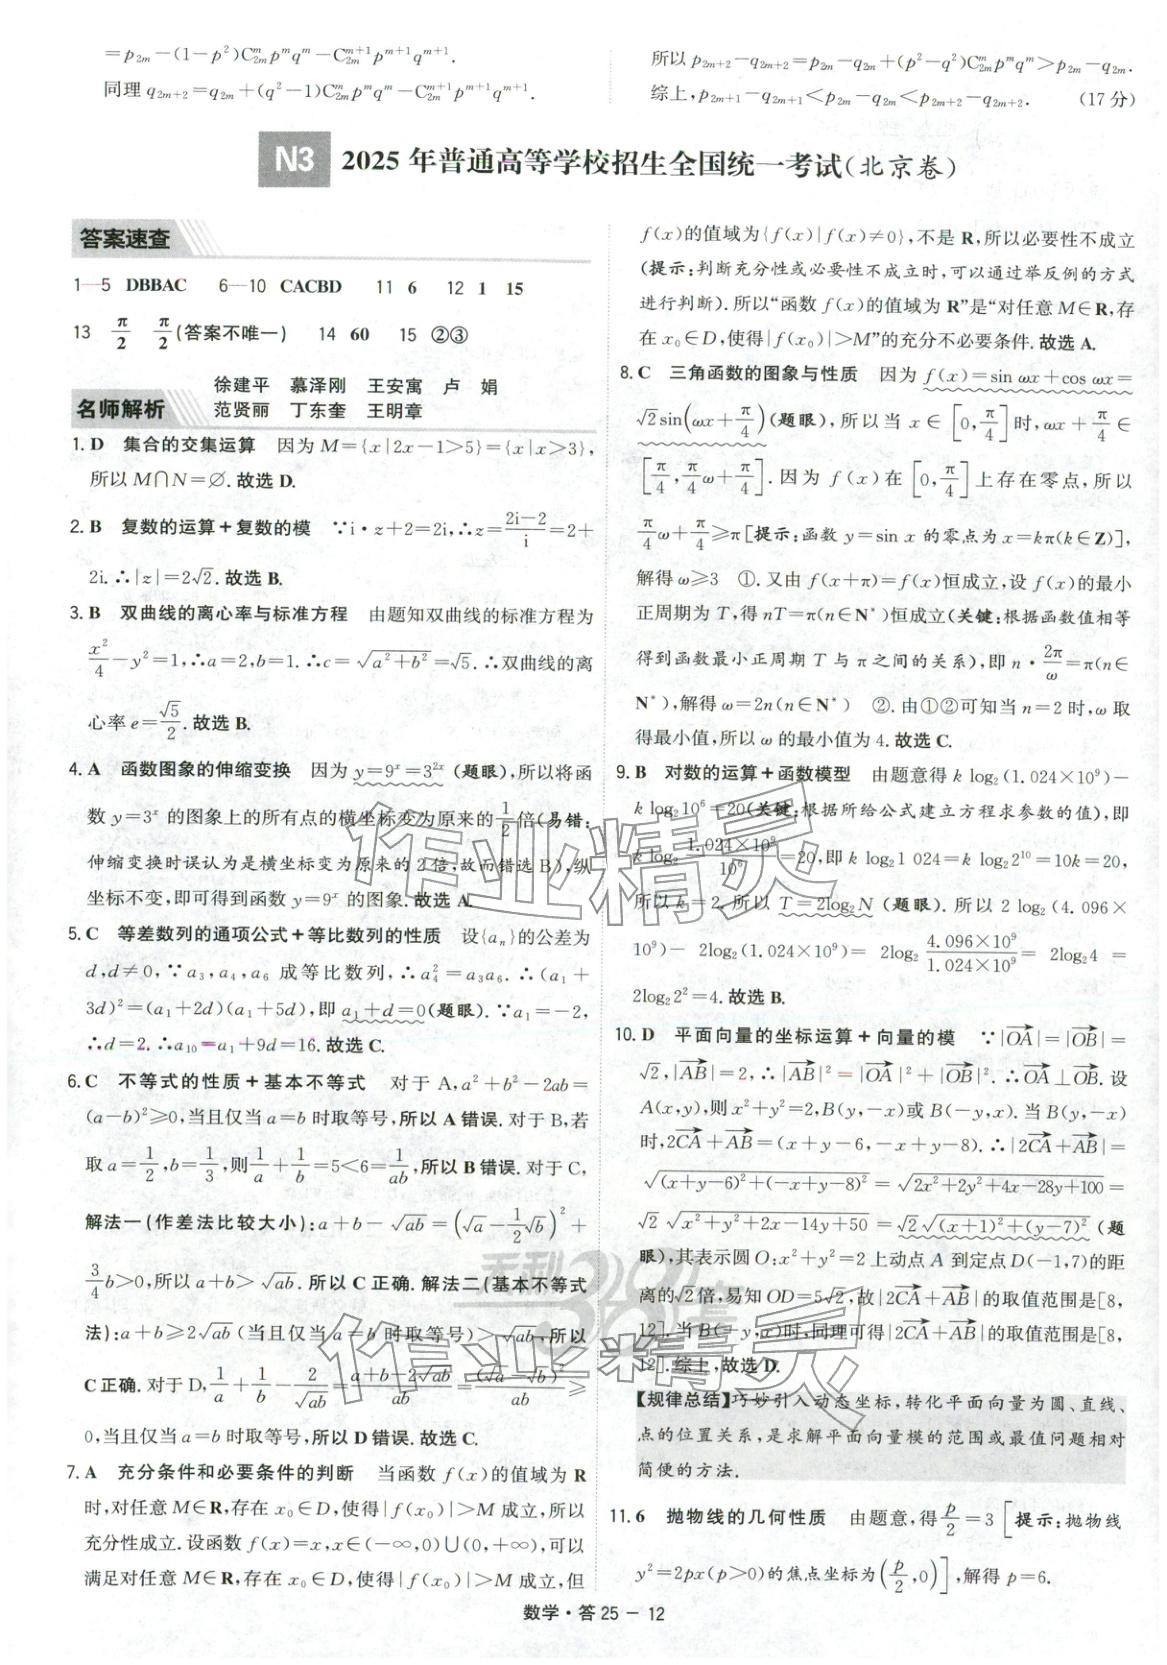 =p₂ₘ-(1-p²)C₂ₘᵐpᵐqᵐ-C₂ₘᵐ⁺¹pᵐ⁺¹qᵐ⁺¹.
同理 q₂ₘ₊₂=q₂ₘ+(q²-1)C₂ₘᵐpᵐqᵐ-C₂ₘᵐ⁺¹pᵐ⁺¹qᵐ⁺¹.
所以 p₂ₘ₊₂-q₂ₘ₊₂=p₂ₘ-q₂ₘ+(p²-q²)C₂ₘᵐpᵐqᵐ>p₂ₘ-q₂ₘ.
综上,p₂ₘ₊₁-q₂ₘ₊₁<p₂ₘ-q₂ₘ<p₂ₘ₊₂-q₂ₘ₊₂. (17分)
N3 2025年普通高等学校招生全国统一考试(北京卷)
答案速查
1—5 DBBAC 6—10 CACBD 11 6 12 1 15
13 π/2 π/2(答案不唯一) 14 60 15 ②③
徐建平 慕泽刚 王安寓 卢 娟
名师解析 范贤丽 丁东奎 王明章
1. D 集合的交集运算 因为 M={x|2x-1>5}={x|x>3},
所以 M∩N=∅.故选 D.
2. B 复数的运算+复数的模 ∵i·z+2=2i,∴z=(2i-2)/i=2+
2i.∴|z|=2√2.故选 B.
3. B 双曲线的离心率与标准方程 由题知双曲线的标准方程为
x²/4-y²=1,∴a=2,b=1.∴c=√(a²+b²)=√5.∴双曲线的离
心率 e=√5/2.故选 B.
4. A 函数图象的伸缩变换 因为 y=9ˣ=3²ˣ(题眼),所以将函
数 y=3ˣ 的图象上的所有点的横坐标变为原来的1/2倍(易错:
伸缩变换时误认为是横坐标变为原来的2倍,故而错选 B),纵
坐标不变,即可得到函数 y=9ˣ 的图象.故选 A.
5. C 等差数列的通项公式+等比数列的性质 设{aₙ}的公差为
d,d≠0,∵a₃,a₄,a₆ 成等比数列,∴a₄²=a₃a₆.∴(a₁+
3d)²=(a₁+2d)(a₁+5d),即 a₁+d=0(题眼).∵a₁=-2,
∴d=2.∴a₁₀=a₁+9d=16.故选 C.
6. C 不等式的性质+基本不等式 对于 A,a²+b²-2ab=
(a-b)²≥0,当且仅当 a=b 时取等号,所以 A 错误.对于 B,若
取 a=1/2,b=1/3,则1/a+1/b=5<6=1/(ab),所以 B 错误.对于 C,
解法一(作差法比较大小):a+b-√(ab)=(√a-1/2√b)²+
3/4b>0,所以 a+b>√(ab).所以 C 正确.解法二(基本不等式
法):a+b≥2√(ab)(当且仅当 a=b 时取等号)>√(ab),所以
C 正确.对于 D,1/a+1/b-2/√(ab)=(a+b-2√(ab))/(ab)=(√a-√b)²/(ab)≥
0,当且仅当 a=b 时取等号,所以 D 错误.故选 C.
7. A 充分条件和必要条件的判断 当函数 f(x)的值域为 R
时,对任意 M∈R,存在 x₀∈D,使得|f(x₀)|>M 成立,所以
充分性成立.设函数 f(x)=x,x∈(-∞,0)∪(0,+∞),可以
满足对任意 M∈R,存在 x₀∈D,使得|f(x₀)|>M 成立,但
f(x)的值域为{f(x)|f(x)≠0},不是 R,所以必要性不成立
(提示:判断充分性或必要性不成立时,可以通过举反例的方式
进行判断).所以“函数 f(x)的值域为 R”是“对任意 M∈R,存
在 x₀∈D,使得|f(x₀)|>M”的充分不必要条件.故选 A.
8. C 三角函数的图象与性质 因为 f(x)=sin ωx+cos ωx=
√2sin(ωx+π/4)(题眼),所以当 x∈[0,π/4]时,ωx+π/4∈
[π/4,π/4ω+π/4].因为 f(x)在[0,π/4]上存在零点,所以
π/4ω+π/4≥π[提示:函数 y=sin x 的零点为 x=kπ(k∈Z)],
解得 ω≥3 ①.又由 f(x+π)=f(x)恒成立,设 f(x)的最小
正周期为 T,得 nT=π(n∈N*)恒成立(关键:根据函数值相等
得到函数最小正周期 T 与 π 之间的关系),即 n·2π/ω=π(n∈
N*),解得 ω=2n(n∈N*) ②.由①②可知当 n=2 时,ω 取
得最小值,所以 ω 的最小值为 4.故选 C.
9. B 对数的运算+函数模型 由题意得 k log₂(1.024×10⁹)-
k log₂10⁶=20(关键:根据所给公式建立方程求参数的值),即
k log₂(1.024×10⁹)/10⁶=20,即 k log₂1 024=k log₂2¹⁰=10k=20,
所以 k=2.所以 T=2log₂N(题眼).所以 2 log₂(4.096×
10⁹)-2log₂(1.024×10⁹)=2log₂(4.096×10⁹)/(1.024×10⁹)=2log₂4=
2log₂2²=4.故选 B.
10. D 平面向量的坐标运算+向量的模 ∵|OA→|=|OB→|=
√2,|AB→|=2,∴|AB→|²=|OA→|²+|OB→|².∴OA→⊥OB→.设
A(x,y),则 x²+y²=2,B(y,-x)或 B(-y,x).当 B(y,-x)
时,2CA→+AB→=(x+y-6,-x+y-8).∴|2CA→+AB→|=
√((x+y-6)²+(-x+y-8)²)=√(2x²+2y²+4x-28y+100)=
√2√(x²+y²+2x-14y+50)=√2√((x+1)²+(y-7)²)(题
眼),其表示圆 O:x²+y²=2 上动点 A 到定点 D(-1,7)的距
离的√2倍,易知 OD=5√2,故|2CA→+AB→|的取值范围是[8,
12].当 B(-y,x)时,同理可得|2CA→+AB→|的取值范围是[8,
12].综上,故选 D.
【规律总结】巧妙引入动态坐标,转化平面向量为圆、直线、
点的位置关系,是求解平面向量模的范围或最值问题相对
简便的方法.
11. 6 抛物线的几何性质 由题意,得p/2=3[提示:抛物线
y²=2px(p>0)的焦点坐标为(p/2,0)],解得 p=6.
数学·答25－12
作业精灵
作业精灵
天利38套